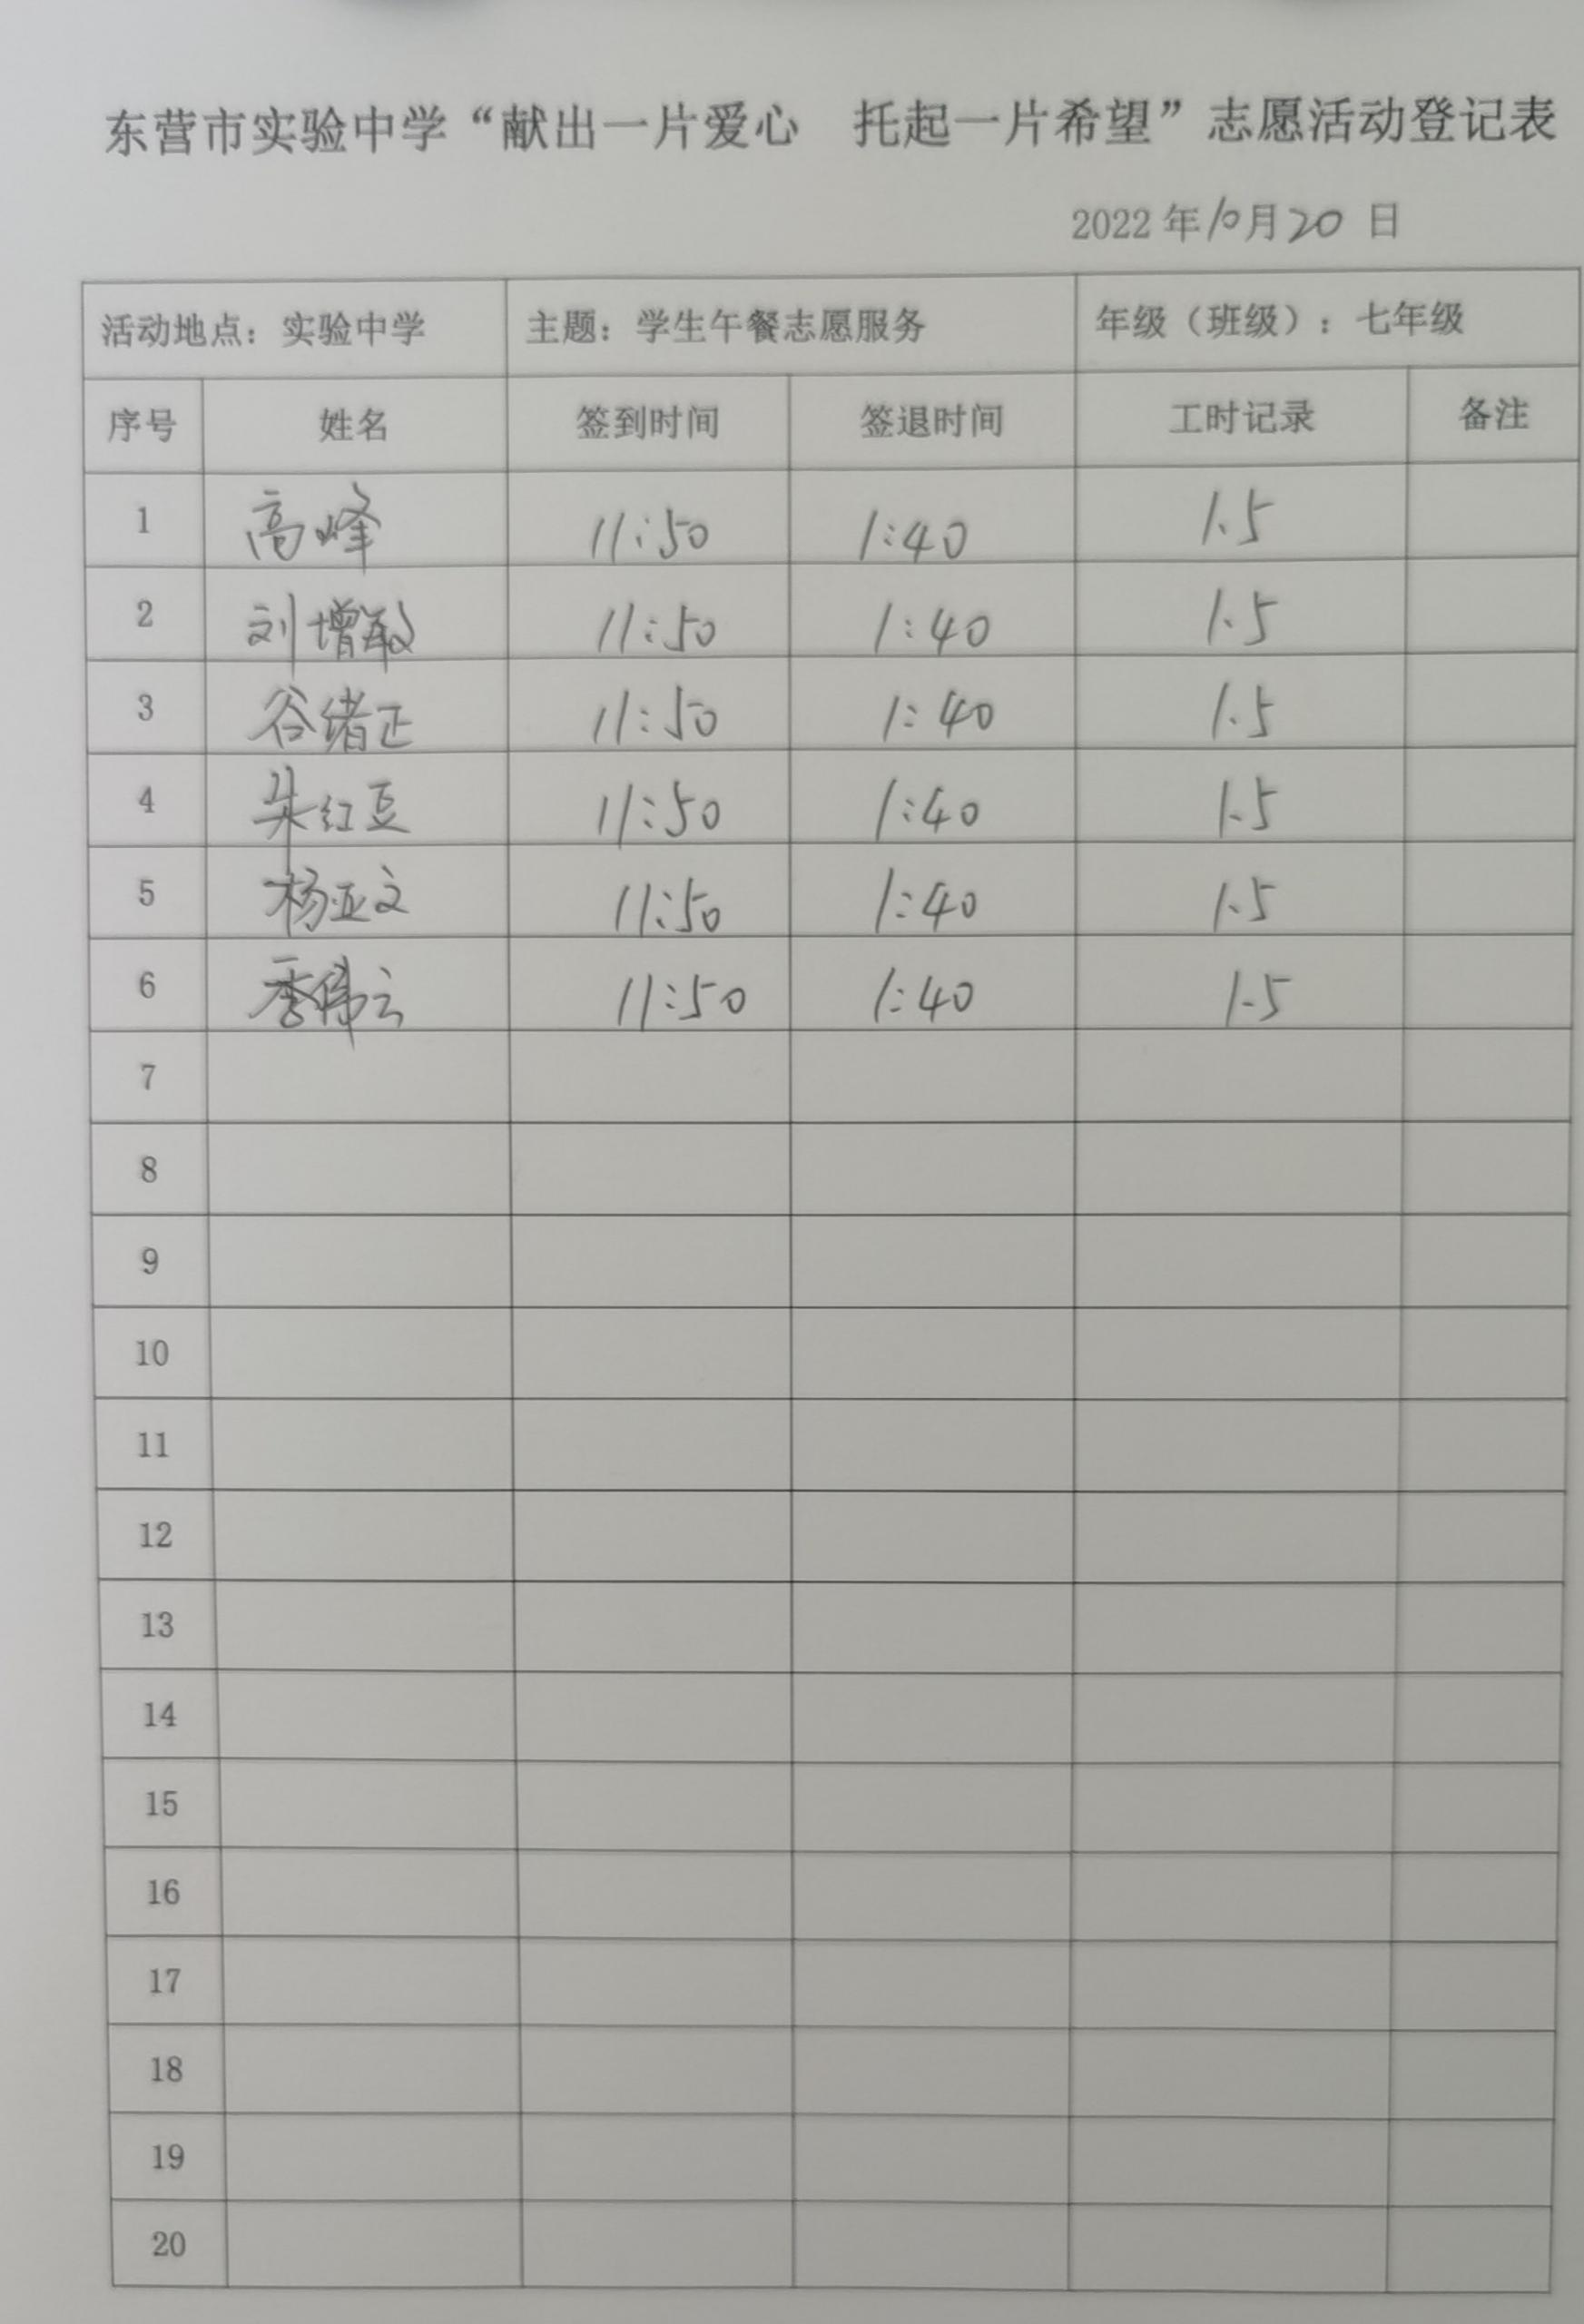 东营市实验中学“献出一片爱心 托起一片希望”志愿活动登记表
2022年10月20 日
活动地点：实验中学 主题：学生午餐志愿服务 年级（班级）：七年级
序号 姓名 签到时间 签退时间 工时记录 备注
1 高峰 11:50 1:40 1.5
2 刘增敏 11:50 1:40 1.5
3 谷绪正 11:50 1:40 1.5
4 朱红豆 11:50 1:40 1.5
5 杨亚文 11:50 1:40 1.5
6 季伟云 11:50 1:40 1.5
7
8
9
10
11
12
13
14
15
16
17
18
19
20